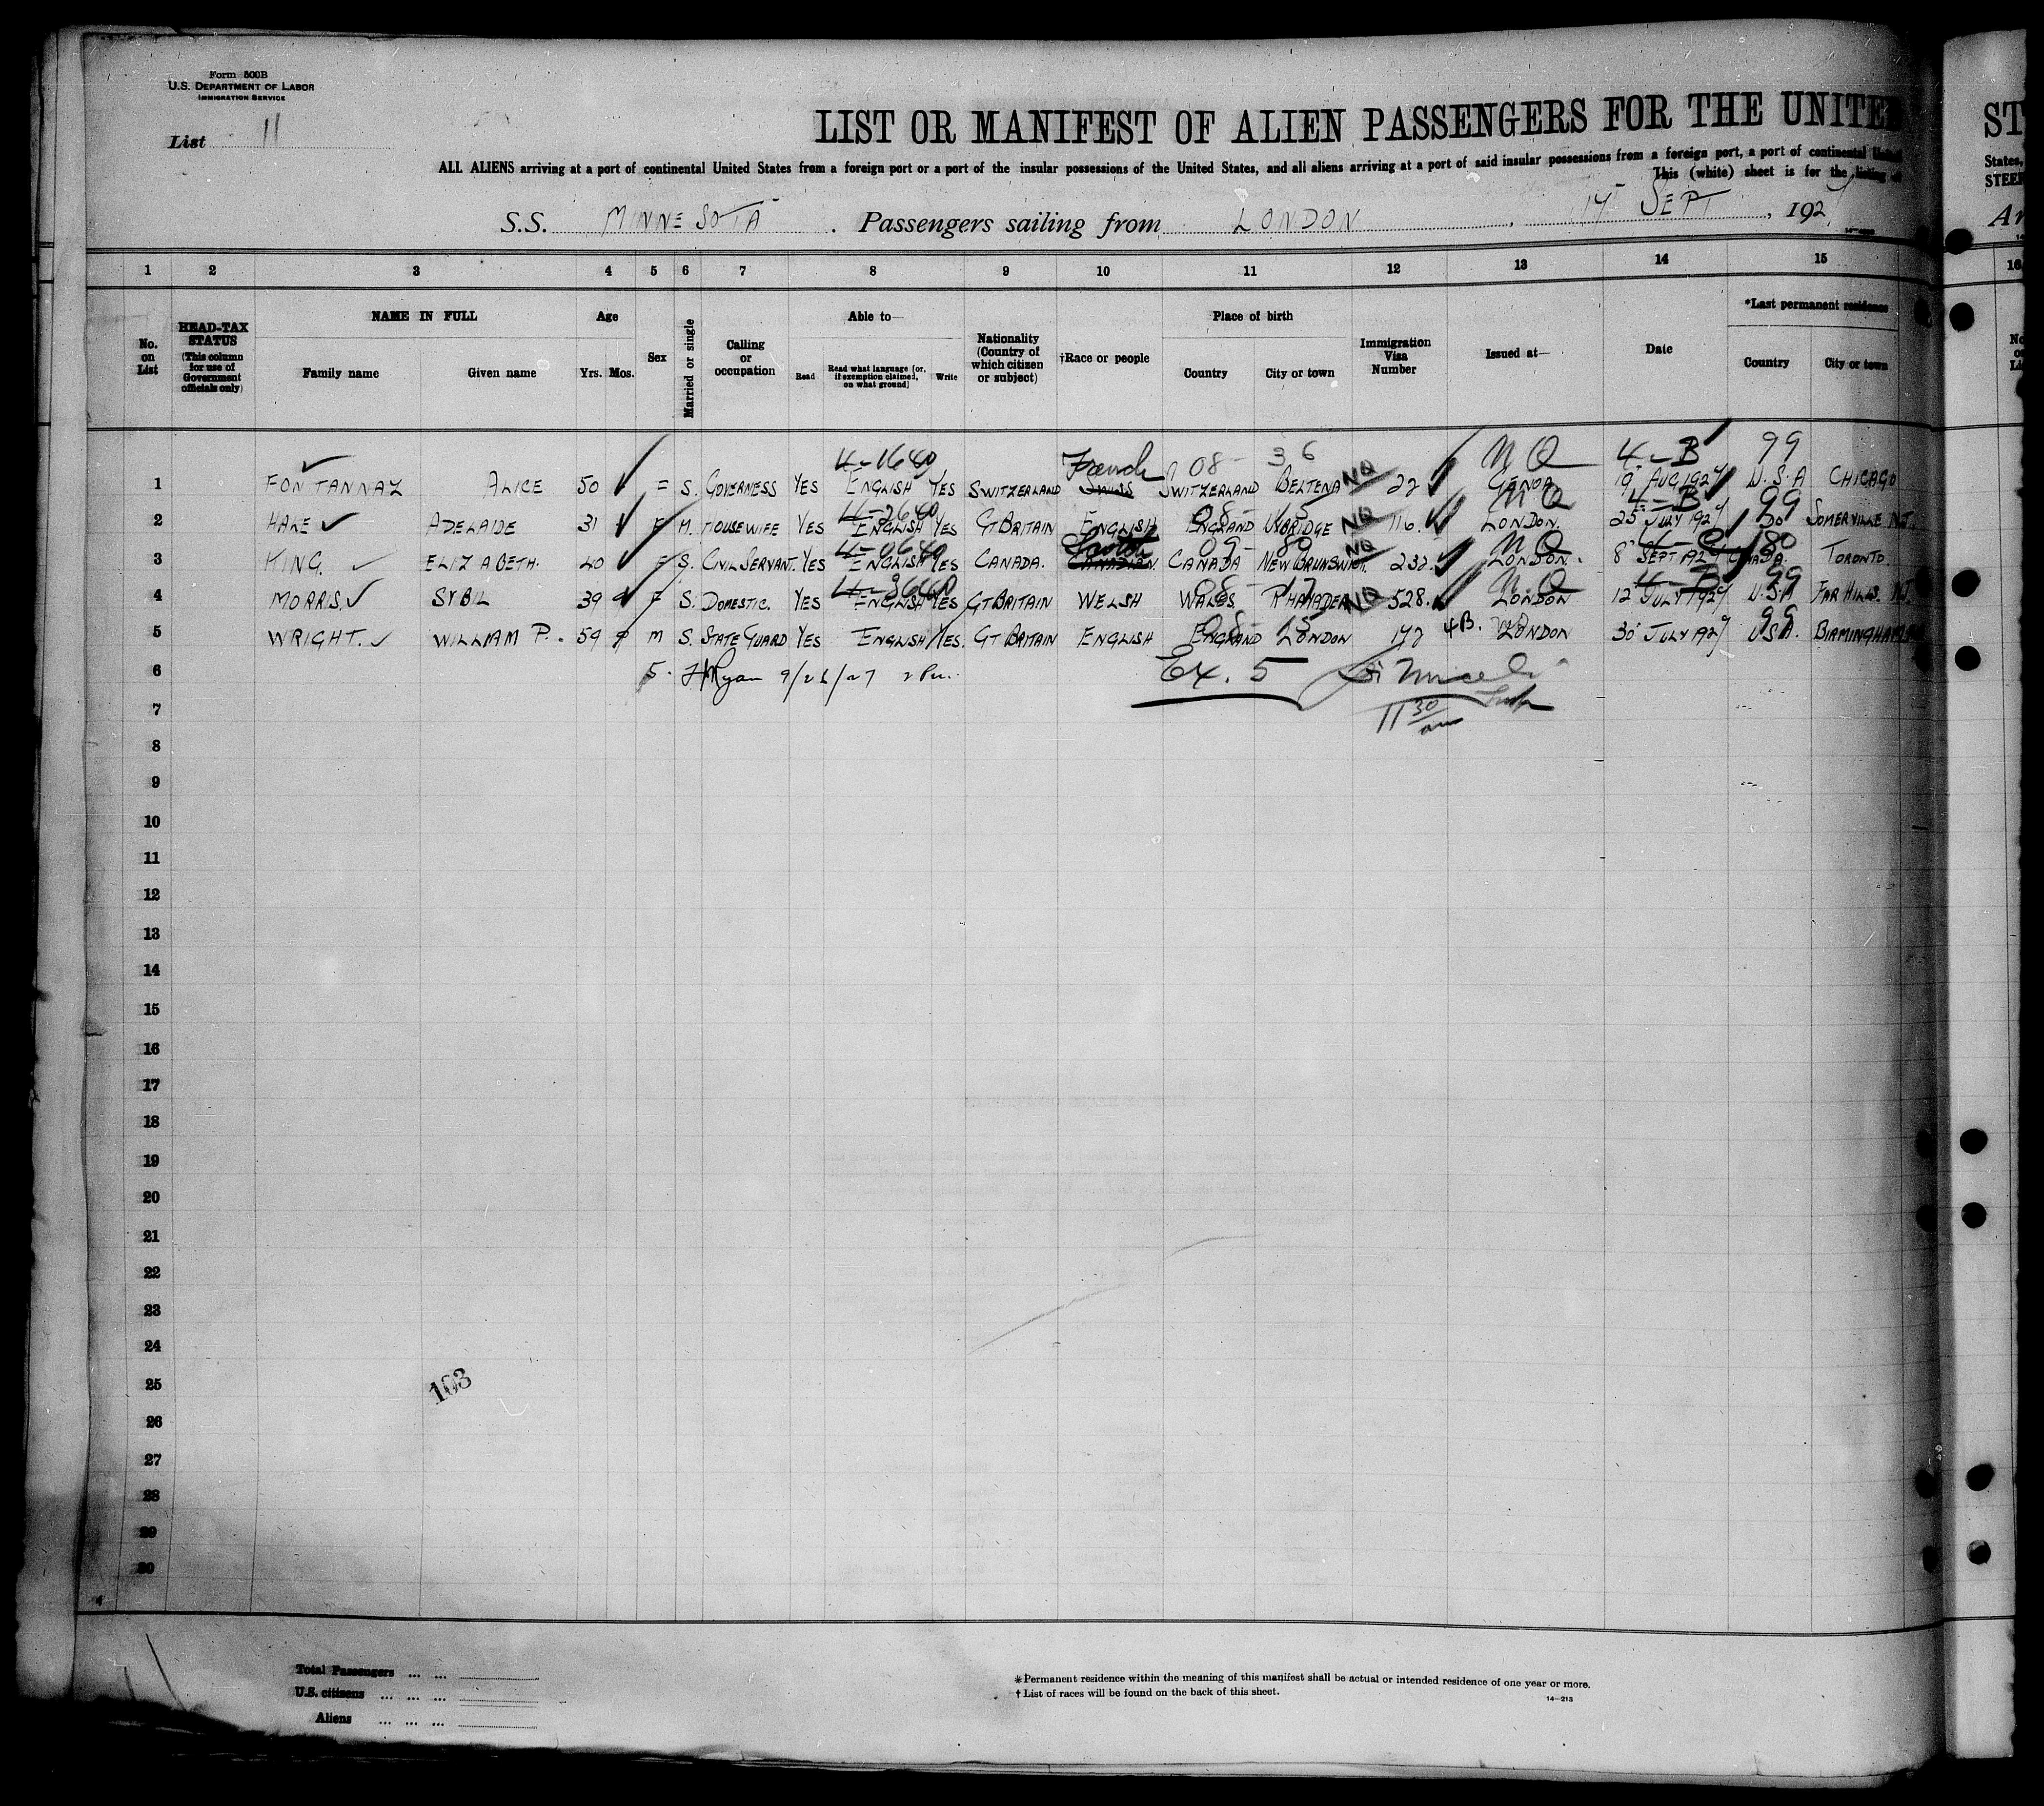 Form 500B
U.S. DEPARTMENT OF LABOR
IMMIGRATION SERVICE
List 11
LIST OR MANIFEST OF ALIEN PASSENGERS FOR THE UNITED
ST
ALL ALIENS arriving at a port of continental United States from a foreign port or a port of the insular possessions of the United States, and all aliens arriving at a port of said insular possessions from a foreign port, a port of continental
States,
This (white) sheet is for the listing of
STEE
S.S. MINNESOTA . Passengers sailing from LONDON , 17 SEPT , 1927
Ar
1 2 3 4 5 6 7 8 9 10 11 12 13 14 15 16
No. on List
HEAD-TAX STATUS (This column for use of Government officials only)
NAME IN FULL
Family name Given name
Age
Yrs. Mos.
Sex
Married or single
Calling or occupation
Able to—
Read
Read what language [or, if exemption claimed, on what ground]
Write
Nationality (Country of which citizen or subject)
†Race or people
Place of birth
Country City or town
Immigration Visa Number
Issued at—
Date
*Last permanent residence
Country City or town
4-1640 French 08- 36 NQ NQ 4-B 99
1 FONTANNAZ ALICE 50 F S. GOVERNESS YES ENGLISH YES SWITZERLAND SWISS SWITZERLAND 22 GENOA 19 AUG 1927 U.S.A CHICAGO
4-2640 08- 15 NQ NQ 4-B 99
2 HAKE ADELAIDE 31 F M. HOUSEWIFE YES ENGLISH YES GT BRITAIN ENGLISH ENGLAND UXBRIDGE 116. LONDON. 25 JULY 1927 DO SOMERVILLE N.J.
4-0640 Scotch 09- 80 NQ NQ 80
3 KING. ELIZABETH. 40 F S. CIVIL SERVANT. YES ENGLISH YES CANADA. CANADIAN CANADA NEW BRUNSWICK. 232. LONDON. 8 SEPT 1927 CANADA. TORONTO.
4-3640 08- 17 NQ NQ 4-B 99
4 MORRIS. SYBIL 39 F S. DOMESTIC. YES ENGLISH YES GT BRITAIN WELSH WALES RHAYADER 528. LONDON 12 JULY 1927 U.S.A FAR HILLS. N.J.
08- 15 4B. 99
5 WRIGHT. WILLIAM P. 59 M S. STATE GUARD YES ENGLISH YES. GT BRITAIN ENGLISH ENGLAND LONDON 172 LONDON 30 JULY 1927 USA. BIRMINGHAM
6 5. Ryan 9/26/27 Ex. 5
7 11 30 am
8
9
10
11
12
13
14
15
16
17
18
19
20
21
22
23
24
25
103
26
27
28
29
30
Total Passengers ... ...
U.S. citizens ... ... ...
Aliens ... ... ...
*Permanent residence within the meaning of this manifest shall be actual or intended residence of one year or more.
†List of races will be found on the back of this sheet.
14—213